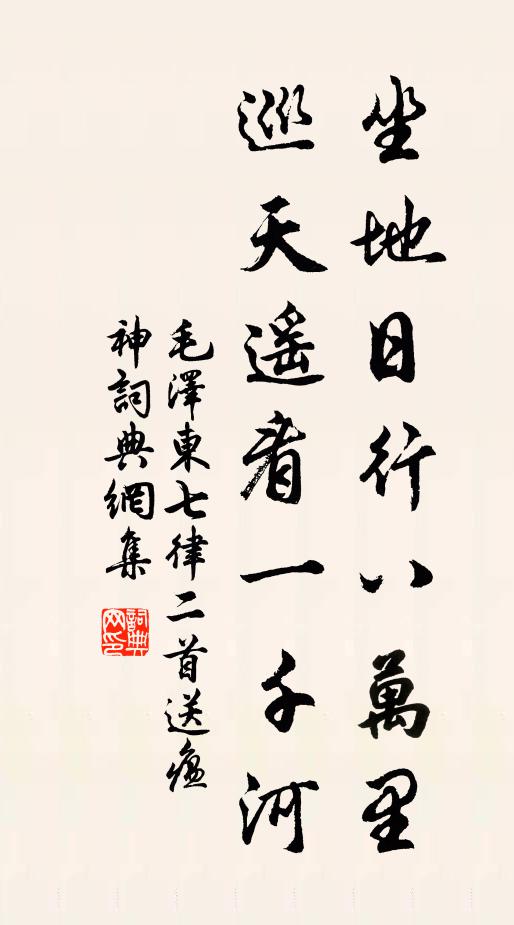 坐地日行八萬里
巡天遥看一千河
毛澤東七律二首送瘟
神詞典網集
詞典網印